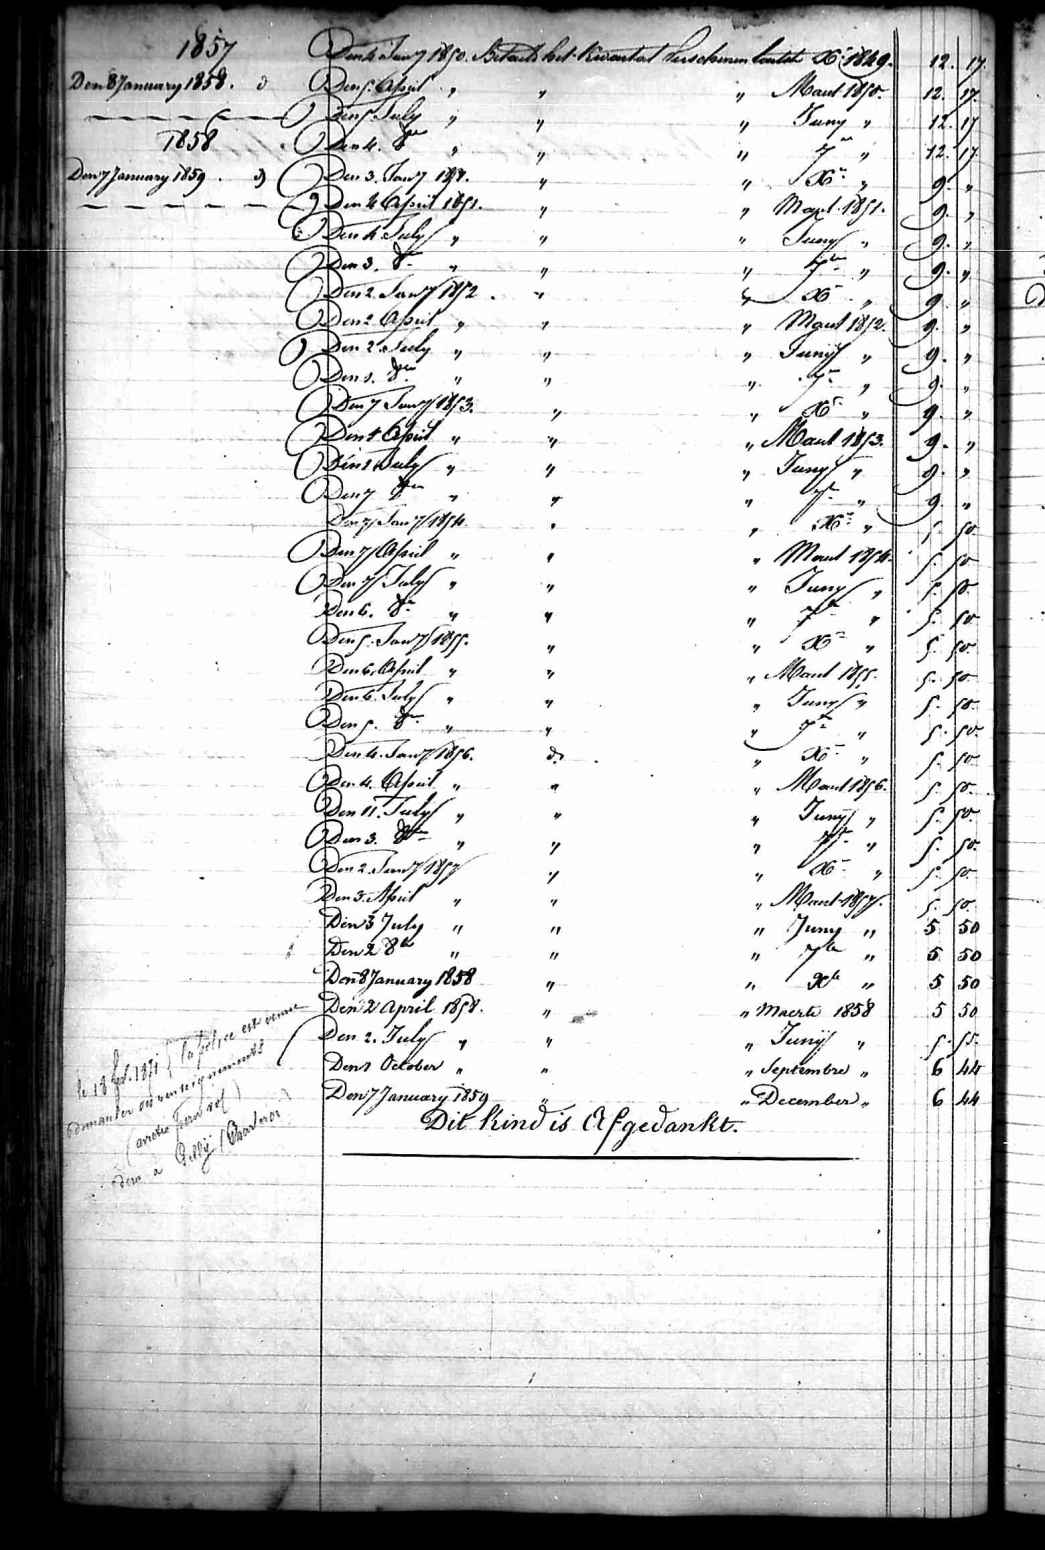 1857
Den 8 January 1858. d
1858
Den 7 January 1859. d
Den 4 Janÿ 1850. Betaelt het kwartal verschenen laetst Xr 1849. 12. 17
Den 5. April " " " Maert 1850. 12. 17.
Den 5 July " " " Juny " 12. 17
Den 4. 8re " " " 7re " 12. 17
Den 3. Janÿ 1851. " " Xr " 9. "
Den 4 April 1851. " " Maert 1851. 9. "
Den 4 July " " " Juny " 9. "
Den 3. 8re " " " 7re " 9. "
Den 2. Janÿ 1852. " " Xr " 9. "
Den 2 April " " " Maert 1852. 9. "
Den 2. July " " " Juny " 9. "
Den 1. 8re " " " 7re " 9. "
Den 7 Janÿ 1853. " " Xr " 9. "
Den 1 April " " " Maert 1853. 9. "
Den 1 July " " " Juny " 9. "
Den 7 8re " " " 7re " 9. "
Den 7 Janÿ 1854 " " Xr " 5. 50
Den 7 April " " " Maert 1854. 5. 50
Den 7 July " " " Juny " 5. 50.
Den 6. 8re " " " 7re " 5. 50
Den 5. Janÿ 1855. " " Xr " 5. 50.
Den 6. April " " " Maert 1855. 5. 50.
Den 6. July " " " Juny " 5. 50.
Den 5. 8re " " " 7re " 5. 50.
Den 4. Janÿ 1856. d. " Xr " 5. 50.
Den 4. April " " " Maert 1856. 5. 50.
Den 11. July " " " Juny " 5. 50.
Den 3. 8re " " " 7re " 5. 50.
Den 2. Janÿ 1857 " " Xr " 5. 50.
Den 3. April " " " Maert 1857. 5. 50.
Den 3 July " " " Juny " 5 50
Den 2 8be " " " 7be " 5 50
Den 8 January 1858 " " Xbe " 5 50
Den 2 April 1858. " " Maerte 1858 5 50
Den 2. July " " " Juny " 5. 55.
Den 1 October " " " Septembre " 6 44
Den 7 January 1859 " " December " 6 44
Dit kind is Afgedankt.
le 18 1871 la police est venue
demander des renseignements
à Gilly (Charleroi)